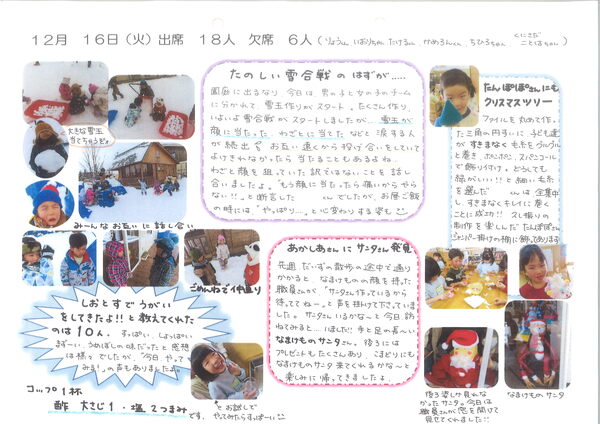 12月 16日(火) 出席 18人 欠席 6人
たのしい雪合戦のはずが.....
園庭に出るなり 今日は 男の子と女の子のチーム
に分かれて、雪玉作りがスタート。たくさん作り、
いよいよ雪合戦がスタートしましたが…雪玉が
顔に当った、わざとに当てた などと 涙する人
が続出 お互い遠くから投げ合いをしていて
よけきれなかったら当たることもあるよね。
わざと顔を狙っていた訳ではないことを話し
合いましたよ。「もう顔に当ったら痛いからやら
ない!!」と断言した んでしたが、お昼ご飯
の時には「やっぱり…」と心変わりする姿も
大きな雪玉
当てちゃうぞ。
みーんなお互いに話し合い
ごめんねで仲直り
たんぽぽさんにも
クリスマスツリー
ファイルを丸めて作っ
た三角の円すいに 子ども達
が すきまなく 毛糸をグルグル
と巻き、ポンポンや、スパンコール
で飾り付け。どうしても
緑がいい!!と細い毛糸
を選んだ んは 全集中
すきまなくキレイに巻く
ことに成功!! スし振りの
制作を楽しんだ たんぽぽさん
ジャンパー掛けの棚に飾ってあります
あかしあさんに サンタさん 発見
先週、だいずの散歩の途中で通り
かかると なまけものの顔を持った
職員さんが「サンタ作っているから
待っててねー」と声を掛けて下さっていま
した。サンタいるかなーと今日、訪
ねてみると…いました!! 手と足の長〜い
なまけものサンタさん。後ろには
プレゼントもたくさんあり、こまどりにも
なまけものサンタ 来てくれるかな〜と
楽しみに帰ってきましたよ
しおとすでうがい
をしてきたよ!! と教えてくれた
のは 10人。すっぱい、しょっぱい
まずーい、うめぼしの味だったと感想
は様々でしたが、「今日、やって
みる!」の声もありましたよ。
コップ1杯
酢 大さじ1・塩 2つまみ
です。
とお試しで
やってみたらすっぱーい
後ろ姿しか見れな
かったサンタ。今日は
職員さんが窓を開けて
見せてくれました!!
なまけもの サンタ